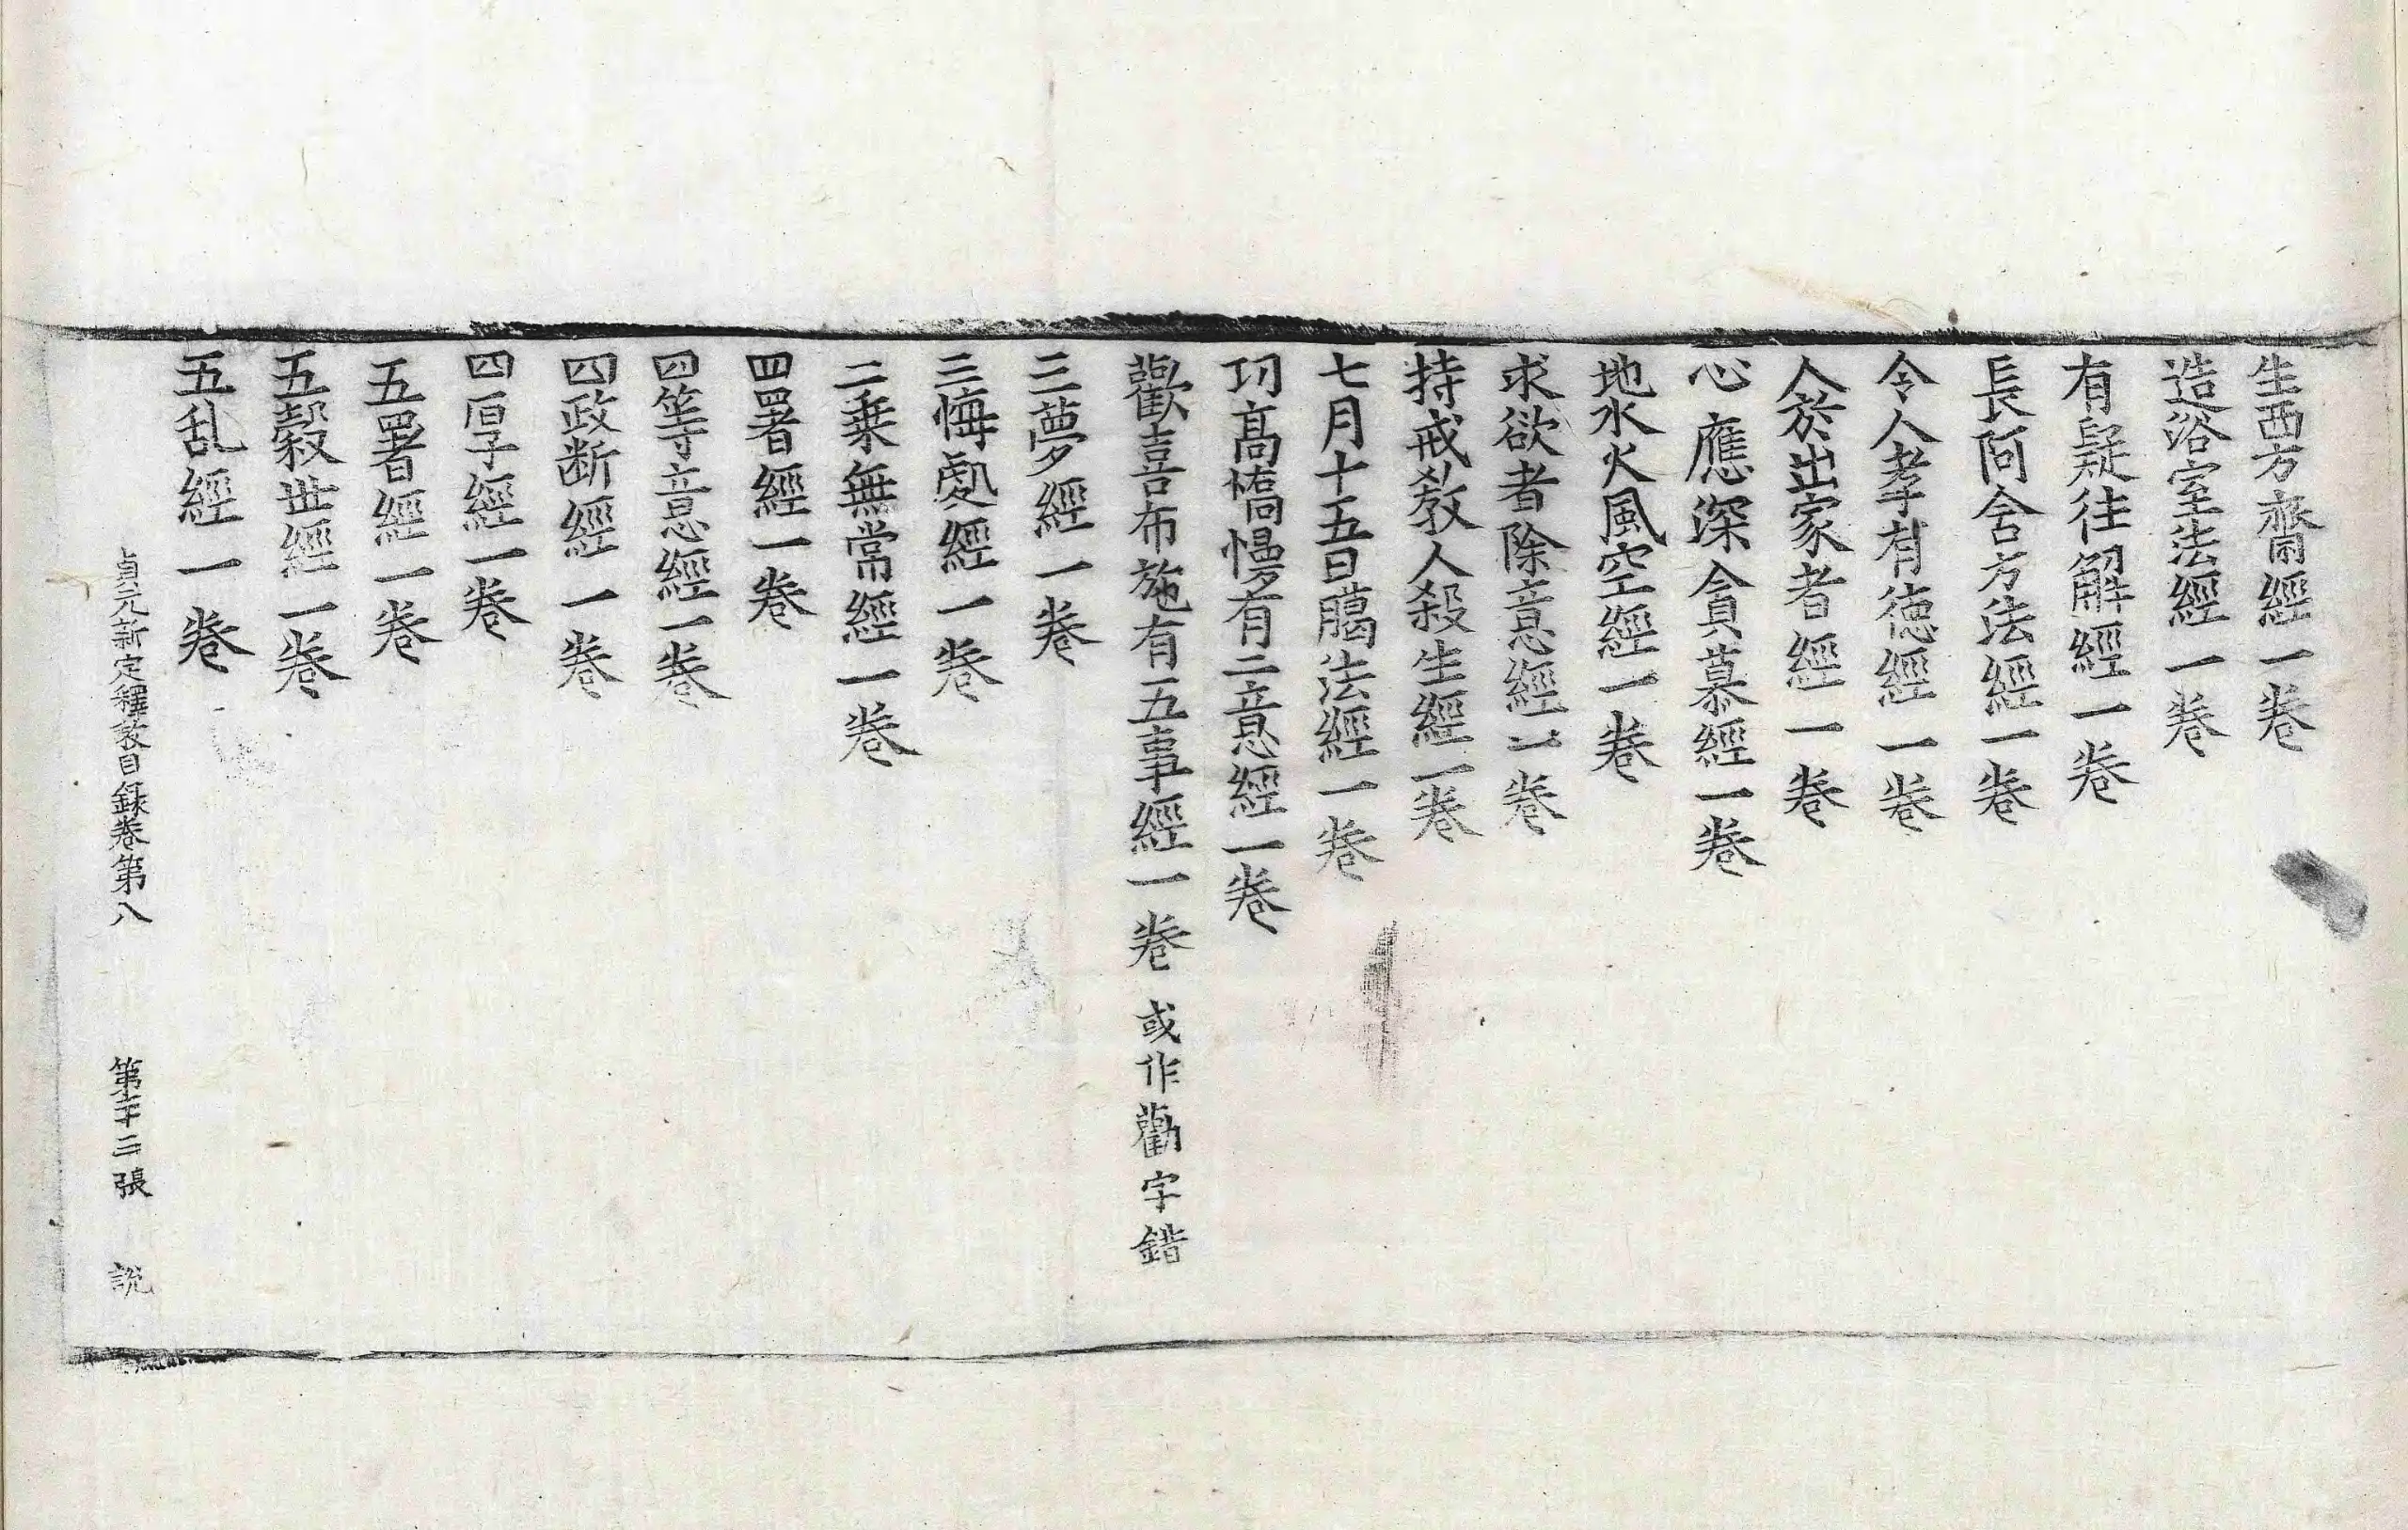 生西方齋經一卷
造浴室法經一卷
有疑往解經一卷
長阿含方法經一卷
令人孝有德經一卷
人於出家者經一卷
心應深貪慕經一卷
地水火風空經一卷
求欲者除意經一卷
持戒教人殺生經一卷
七月十五日臈法經一卷
功高憍慢有二意經一卷
歡喜布施有五事經一卷 或作勸字錯
三夢經一卷
三悔處經一卷
二乗無常經一卷
四署經一卷
四等意經一卷
四政断經一卷
四厚子經一卷
五署經一卷
五穀世經一卷
五乱經一卷
貞元新定釋教目録卷第八 第二十二張 說